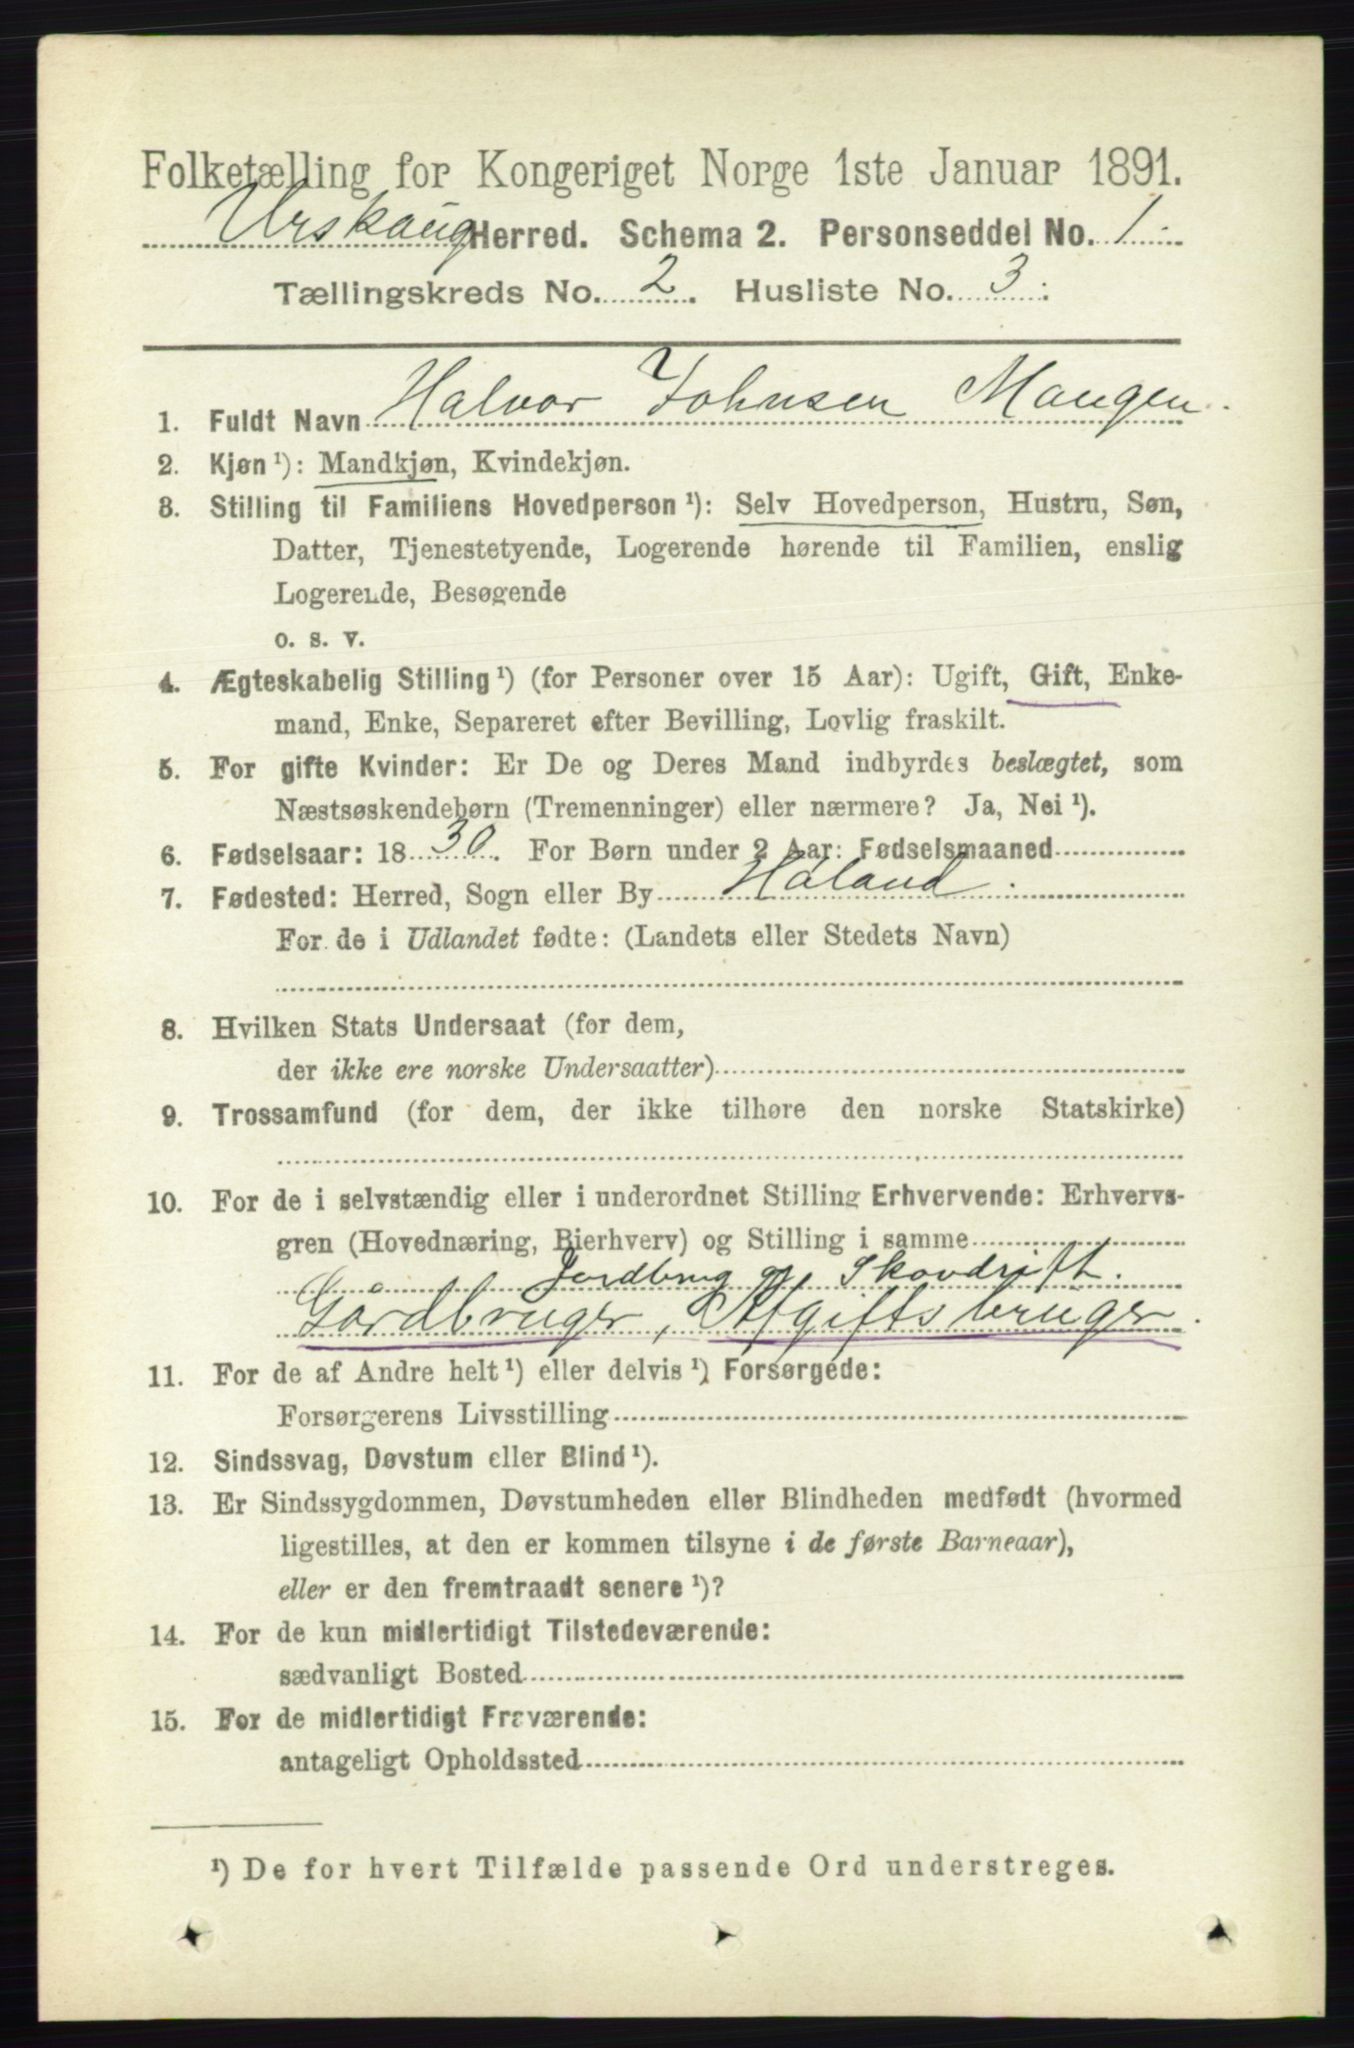 Folketælling for Kongeriget Norge 1ste Januar 1891.
Urskaug Herred. Schema 2. Personseddel No. 1
Tællingskreds No. 2. Husliste No. 3.
1. Fuldt Navn Halvor Johnsen Mangen.
2. Kjøn ¹): Mandkjøn, Kvindekjøn.
3. Stilling til Familiens Hovedperson ¹): Selv Hovedperson, Hustru, Søn,
Datter, Tjenestetyende, Logerende hørende til Familien, enslig
Logerende, Besøgende
o. s. v.
4. Ægteskabelig Stilling ¹) (for Personer over 15 Aar): Ugift, Gift, Enke-
mand, Enke, Separeret efter Bevilling, Lovlig fraskilt.
5. For gifte Kvinder: Er De og Deres Mand indbyrdes beslægtet, som
Næstsøskendebørn (Tremenninger) eller nærmere? Ja, Nei ¹).
6. Fødselsaar: 1830. For Børn under 2 Aar: Fødselsmaaned
7. Fødested: Herred, Sogn eller By Høland.
For de i Udlandet fødte: (Landets eller Stedets Navn)
8. Hvilken Stats Undersaat (for dem,
der ikke ere norske Undersaatter)
9. Trossamfund (for dem, der ikke tilhøre den norske Statskirke)
10. For de i selvstændig eller i underordnet Stilling Erhvervende: Erhvervs-
gren (Hovednæring, Bierhverv) og Stilling i samme
Jordbrug og Skovdrift.
Gårdbruger, Afgiftsbruger.
11. For de af Andre helt ¹) eller delvis ¹) Forsørgede:
Forsørgerens Livsstilling
12. Sindssvag, Døvstum eller Blind ¹).
13. Er Sindssygdommen, Døvstumheden eller Blindheden medfødt (hvormed
ligestilles, at den er kommen tilsyne i de første Barneaar),
eller er den fremtraadt senere ¹)?
14. For de kun midlertidigt Tilstedeværende:
sædvanligt Bosted
15. For de midlertidigt Fraværende:
antageligt Opholdssted
¹) De for hvert Tilfælde passende Ord understreges.